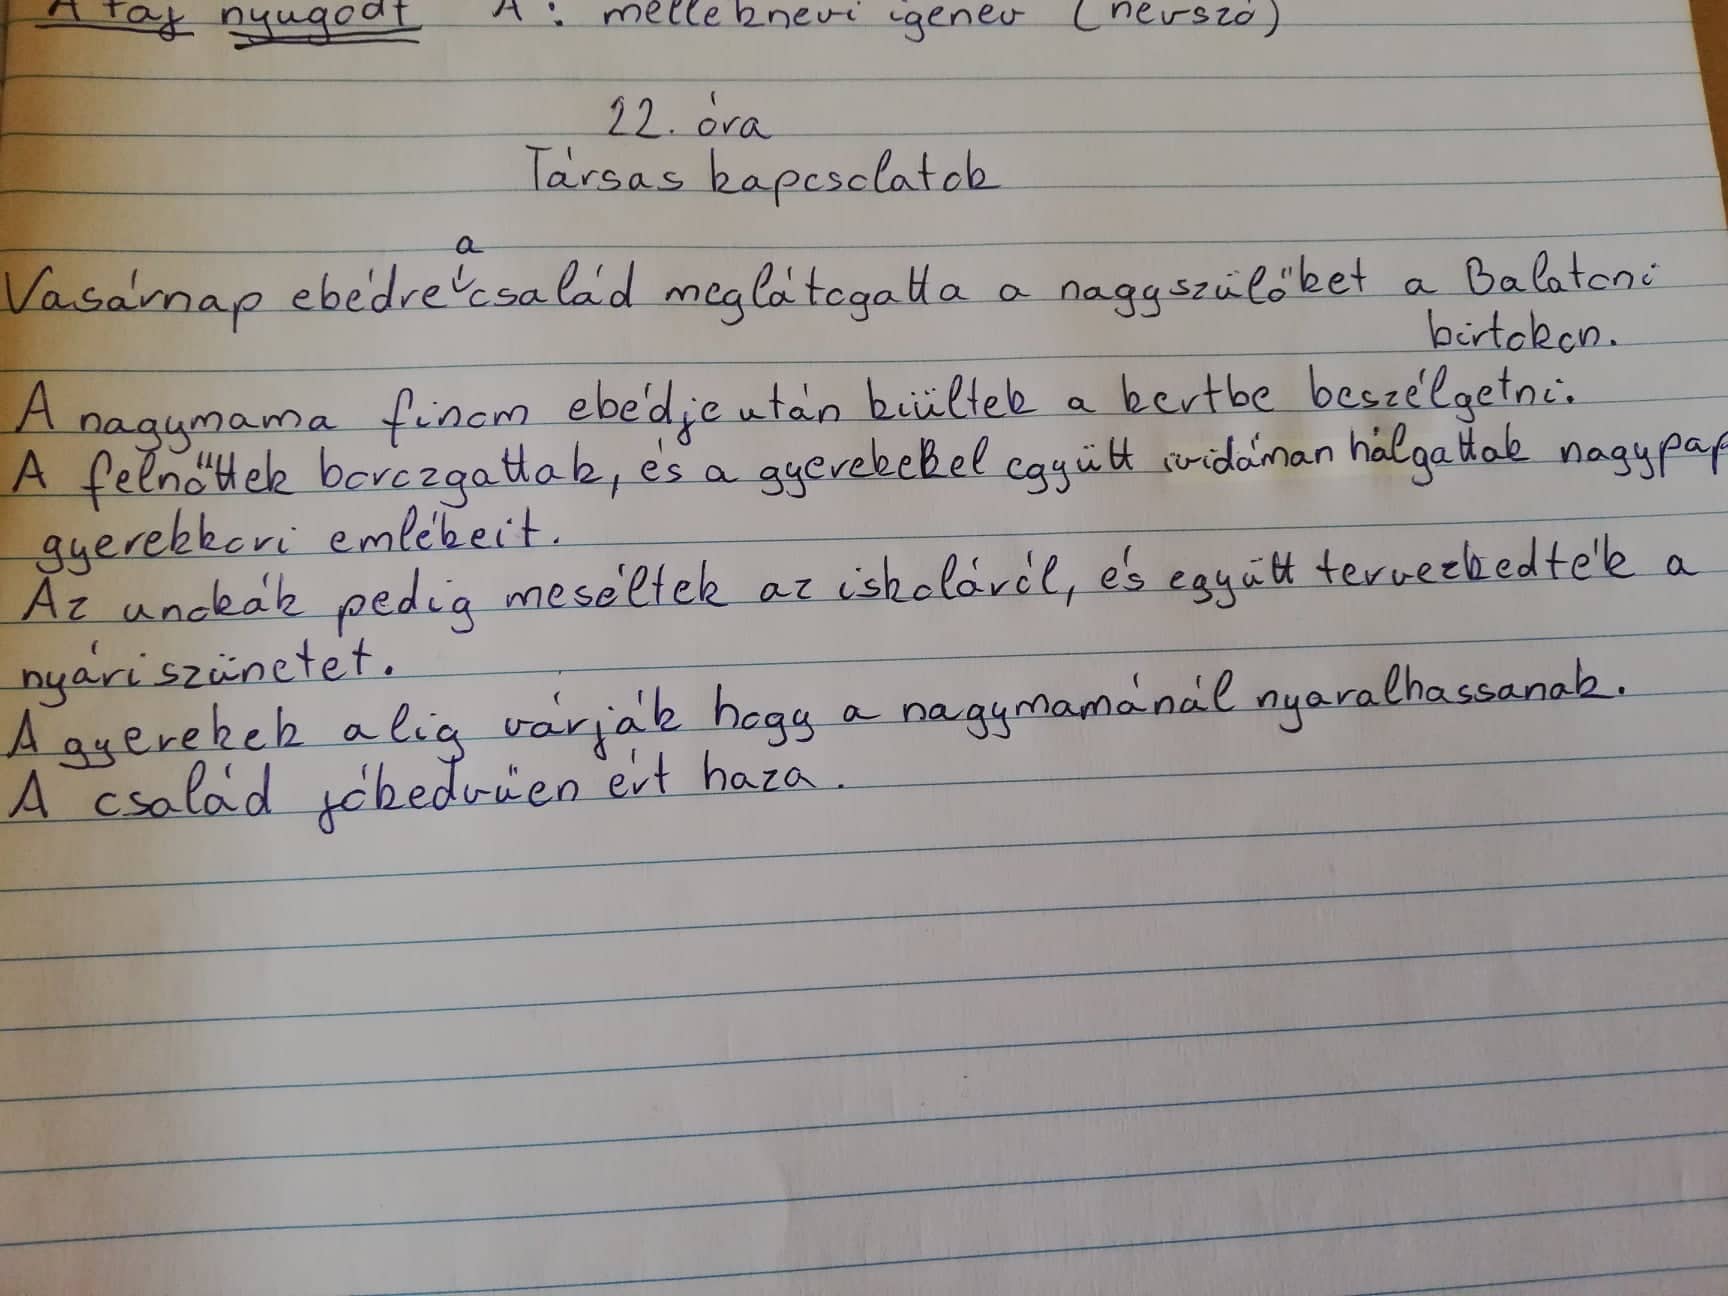 A táj nyugodt A: melléknévi igenév (névszó)
22. óra
Társas kapcsolatok
Vasárnap ebédre a család meglátogatta a nagyszülőket a Balatoni
birtokon.
A nagymama finom ebédje után kiültek a kertbe beszélgetni.
A felnőttek borozgattak, és a gyerekekkel együtt vidáman hálgattak nagypap
gyerekkori emlékeit.
Az unokák pedig meséltek az iskoláról, és együtt tervezkedték a
nyári szünetet.
A gyerekek alig várják hogy a nagymamánál nyaralhassanak.
A család jókedvüen ért haza.